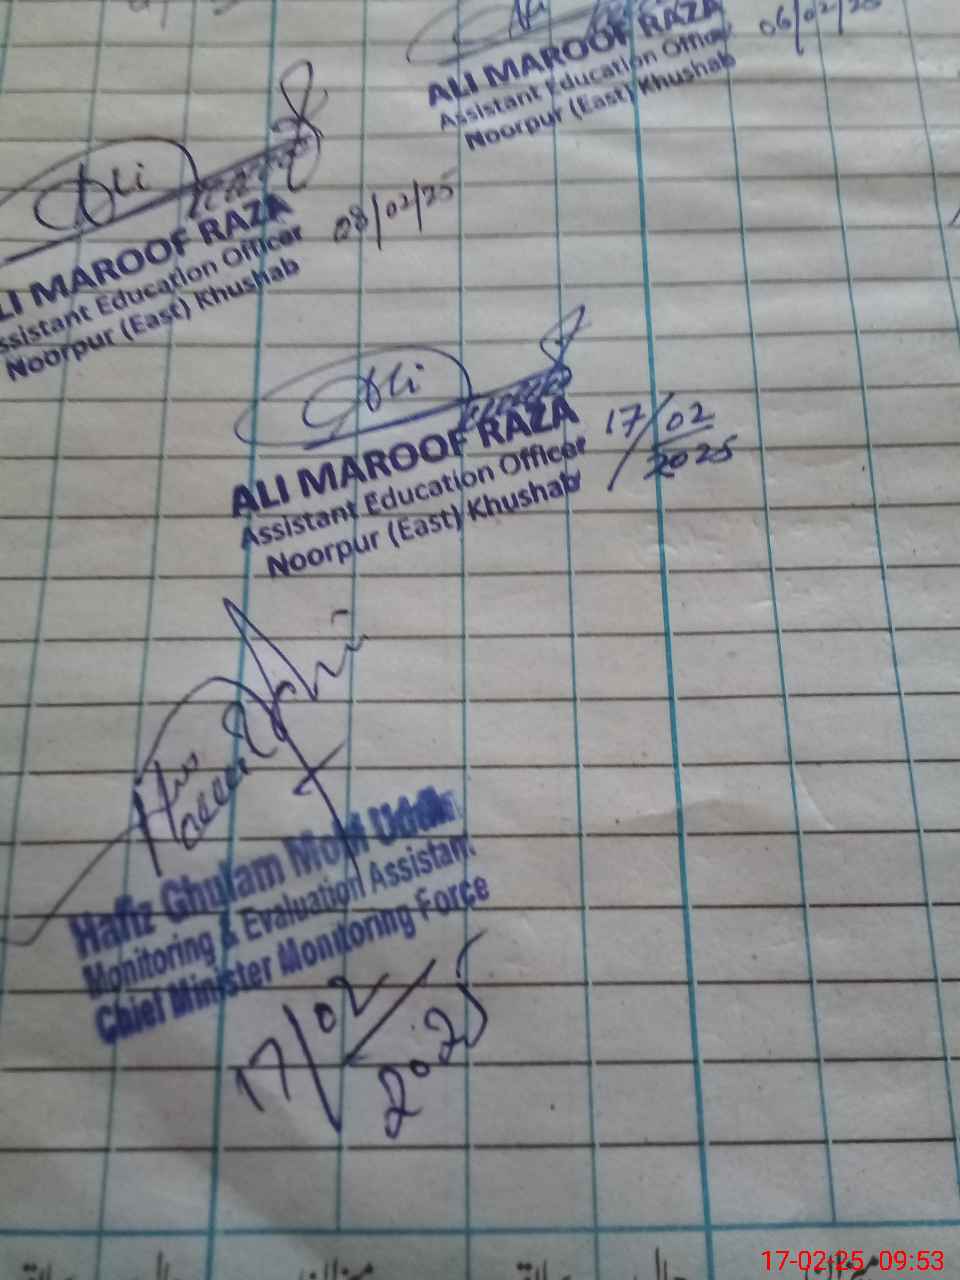 ALI MAROOF RAZA
Assistant Education Officer
Noorpur (East) Khushab
06/02/25
Ali
LI MAROOF RAZA
ssistant Education Officer
Noorpur (East) Khushab
08/02/25
Ali
ALI MAROOF RAZA
Assistant Education Officer
Noorpur (East) Khushab
17/02
2025
Hafiz Ghulam Mohi Uddin
Monitoring & Evaluation Assistant
Chief Minister Monitoring Force
17/02
2025
17-02-25 09:53